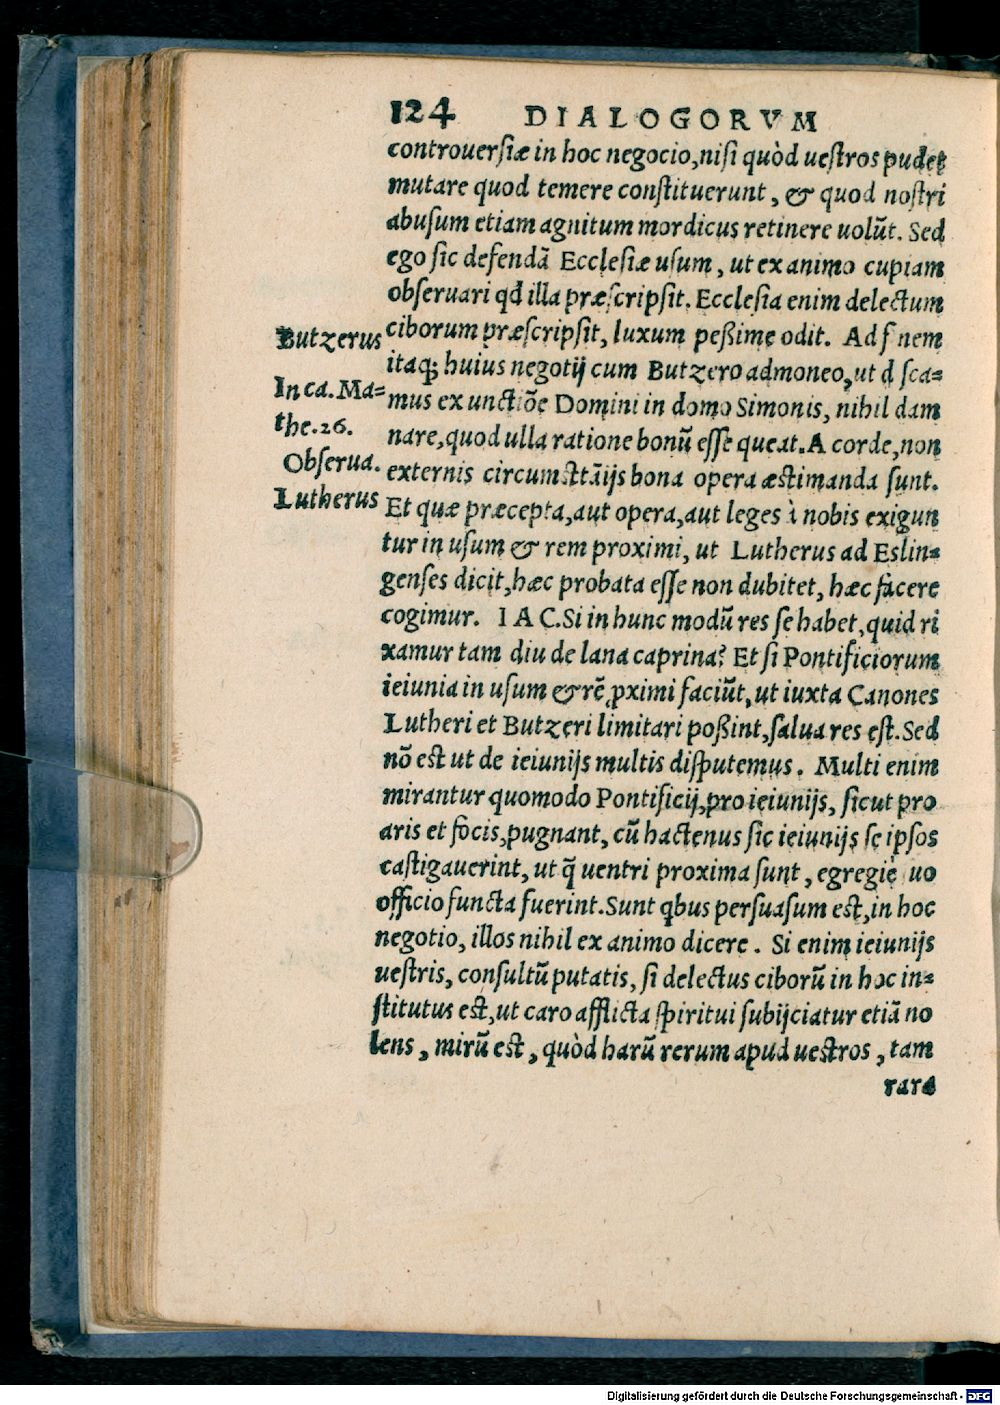 124 DIALOGORVM
controuersiæ in hoc negocio, nisi quòd uestros pudet
mutare quod temere constituerunt, & quod nostri
abusum etiam agnitum mordicus retinere uolūt. Sed
ego sic defendā Ecclesiæ usum, ut ex animo cupiam
obseruari qd illa præscripsit. Ecclesia enim delectum
ciborum præscripsit, luxum peßime odit. Ad f nem
itaq; huius negotij cum Butzero admoneo, ut d sca=
mus ex unctiōe Domini in domo Simonis, nihil dam
nare, quod ulla ratione bonū esse queat. A corde, non
externis circumsttātijs bona opera æstimanda sunt.
Et quæ præcepta, aut opera, aut leges à nobis exigun
tur in usum & rem proximi, ut Lutherus ad Eslin=
genses dicit, hæc probata esse non dubitet, hæc facere
cogimur. I A C. Si in hunc modū res se habet, quid ri
xamur tam diu de lana caprina? Et si Pontificiorum
ieiunia in usum & rē ꝓximi faciūt, ut iuxta Canones
Lutheri et Butzeri limitari poßint, salua res est. Sed
nō est ut de ieiunijs multis disputemus. Multi enim
mirantur quomodo Pontificij, pro ieiunijs, sicut pro
aris et focis, pugnant, cū hactenus sic ieiunijs se ipsos
castigauerint, ut q̄ uentri proxima sunt, egregiè uo
officio functa fuerint. Sunt qbus persuasum est, in hoc
negotio, illos nihil ex animo dicere. Si enim ieiunijs
uestris, consultū putatis, si delectus ciborū in hoc in=
stitutus est, ut caro afflicta spiritui subijciatur etiā no
lens, mirū est, quòd harū rerum apud uestros, tam
rara
Butzerus
In ca. Ma=
the. 26.
Obserua.
Lutherus
Digitalisierung gefördert durch die Deutsche Forschungsgemeinschaft - DFG